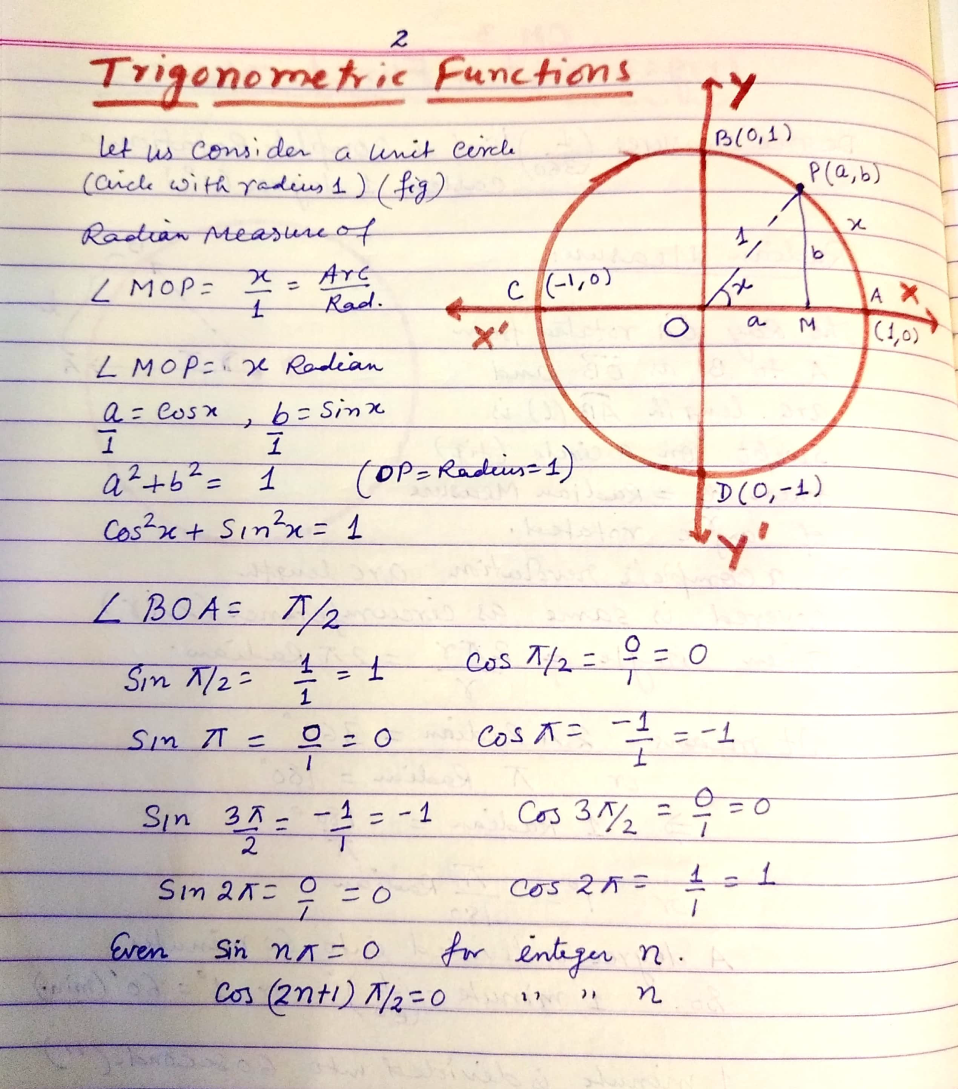 2
Trigonometric Functions
Let us Consider a unit circle
(Circle with radius 1) (fig)
Radian Measure of
∠ MOP = x/1 = Arc/Rad.
∠ MOP = x Radian
a/1 = Cosx , b/1 = Sinx
a² + b² = 1 (OP = Radius = 1)
Cos²x + Sin²x = 1
Y
B(0,1)
P(a,b)
x
1
b
C (-1,0)
x
A
X
X'
O
a
M
(1,0)
D(0,-1)
Y'
∠ BOA = π/2
Sin π/2 = 1/1 = 1 Cos π/2 = 0/1 = 0
Sin π = 0/1 = 0 Cos π = -1/1 = -1
Sin 3π/2 = -1/1 = -1 Cos 3π/2 = 0/1 = 0
Sin 2π = 0/1 = 0 Cos 2π = 1/1 = 1
Even Sin nπ = 0 for integer n.
Cos (2n+1) π/2 = 0 " " n